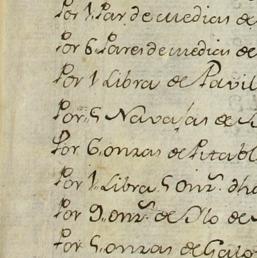 Por 1 Par de medias de
Por 6 Pares de medias de
Por 1 Libra de Pavil
Por 5 Navajas de
Por 6 onzas de Pita bl
Por 1 Libra 5 onz.
Por 9 onz.s de Ilo de
Por 5 onzas de Galo